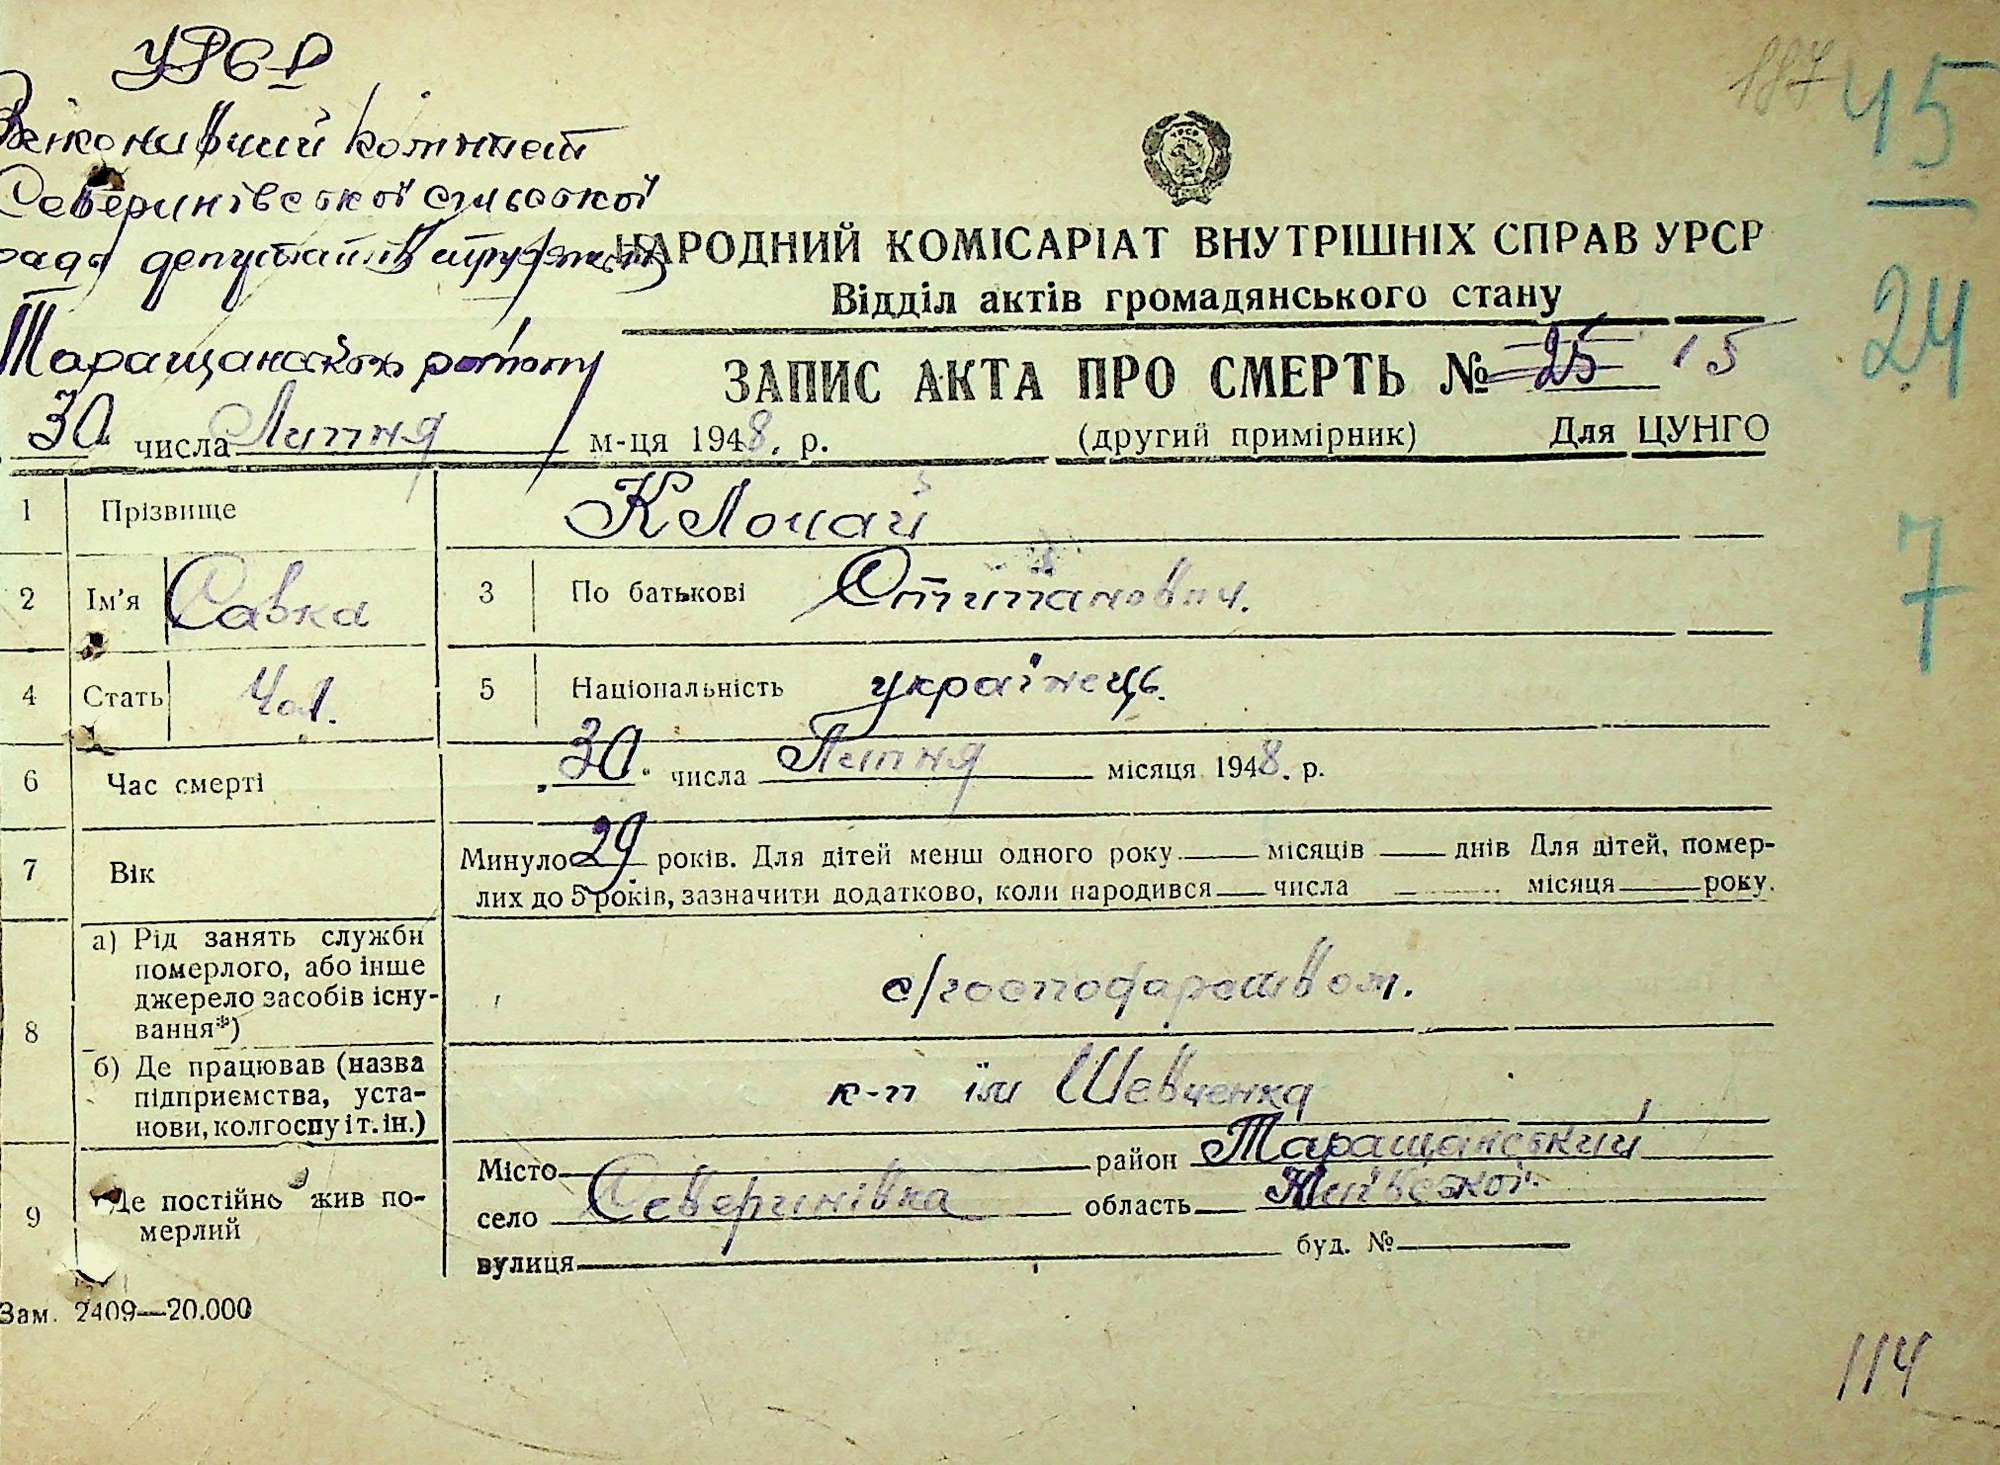 УРСР
Виконивчий комітет
Северинівської сільської
ради депутатів трудящих
Таращанського району
187
45
24
7
УРСР
НАРОДНИЙ КОМІСАРІАТ ВНУТРІШНІХ СПРАВ УРСР
Відділ актів громадянського стану
ЗАПИС АКТА ПРО СМЕРТЬ № 25 15
30 числа Липня м-ця 1948. р. (другий примірник) Для ЦУНГО
1 Прізвище Клочай
2 Ім'я Савка 3 По батькові Степанович.
4 Стать Чол. 5 Національність українець.
6 Час смерті 30 числа Липня місяця 1948. р.
7 Вік Минуло 29 років. Для дітей менш одного року — місяців — днів Для дітей, помер-
лих до 5 років, зазначити додатково, коли народився — числа — місяця — року.
8 а) Рід занять служби
померлого, або інше
джерело засобів існу-
вання*)
с/господарством.
б) Де працював (назва
підприємства, уста-
нови, колгоспу і т. ін.)
к-п ім Шевченка
9 Де постійно жив по-
мерлий
Місто — район Таращанський
село Северинівка область Київської
вулиця — буд. № —
Зам. 2409—20.000
114